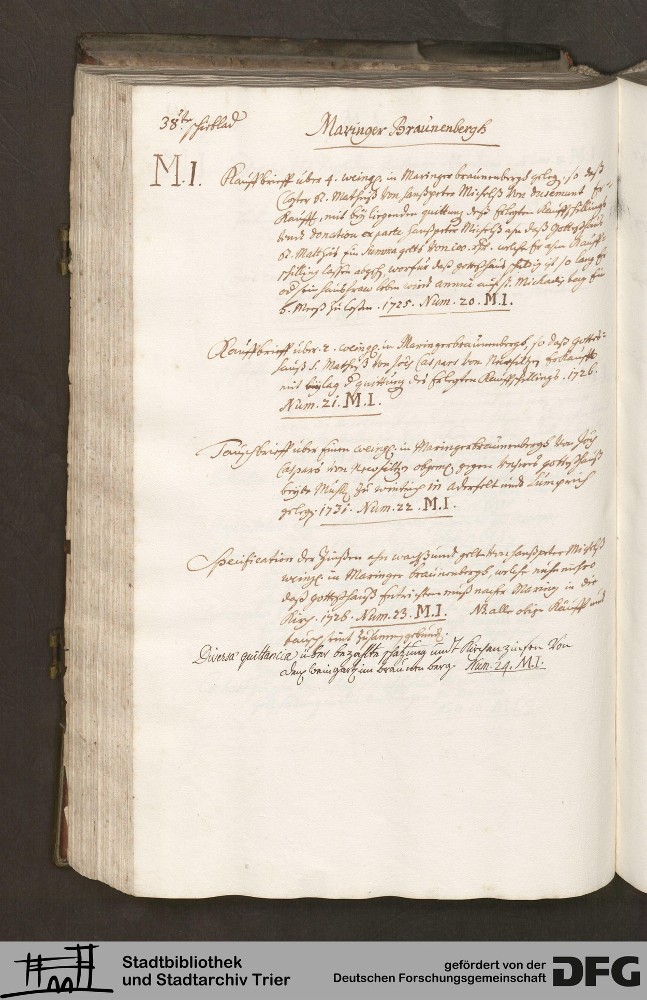 38ste schieblad
Maringer Braunenbergh
M.I. Kauffbrieff über 4. weing. in Maringer braunenbergh geleg. so daß
Closter St. Mathiß von Hanßpeter Michelß von dusemont er-
Kaufft, mit bey liegenden quittung deß erlegten Kauffschillings
donation ex parte Hanßpeter Michelß ahn daß Gotteßhauß
St. Matthiß ein Summa gelts von 100. rth. welche er ahn Kauff-
schilling lassen worfür daß gotteßhauß schuldig ist so lang er
od sein haußfraw leben wird annue auf st. ein
zu lesen. 1725. Num. 20. M.I.
Kauffbrieff über 2. weing. in Maringerbraunenbergh, so daß gottes-
hauß S. Matheiß von Caspars von erkaufft
mit beylag d quittung des erlegten Kauffschillings. 1726.
Num. 21. M.I.
Tauschbrieff über einen weing. in Maringerbraunenbergh von
Caspars von gegen unsers gotteßhauß
zu in und
geleg. 1731. Num. 22. M.I.
Specification der Zinßen ahn wachß und gelt Hanßpeter Michelß
weing. in Maringer braunenbergh, welche
daß gotteßhauß entrichten muß nacher Maring in die
Kirch. 1726. Num. 23. M.I. NB alle obige Kauff und
tausch seint zusammen gebund.
Diversa quittancia über bezahlte schatzung undt Kirchenzinsen von
den weingart im braunenberg. Num. 24. M.I.
Stadtbibliothek
und Stadtarchiv Trier
gefördert von der
Deutschen Forschungsgemeinschaft
DFG